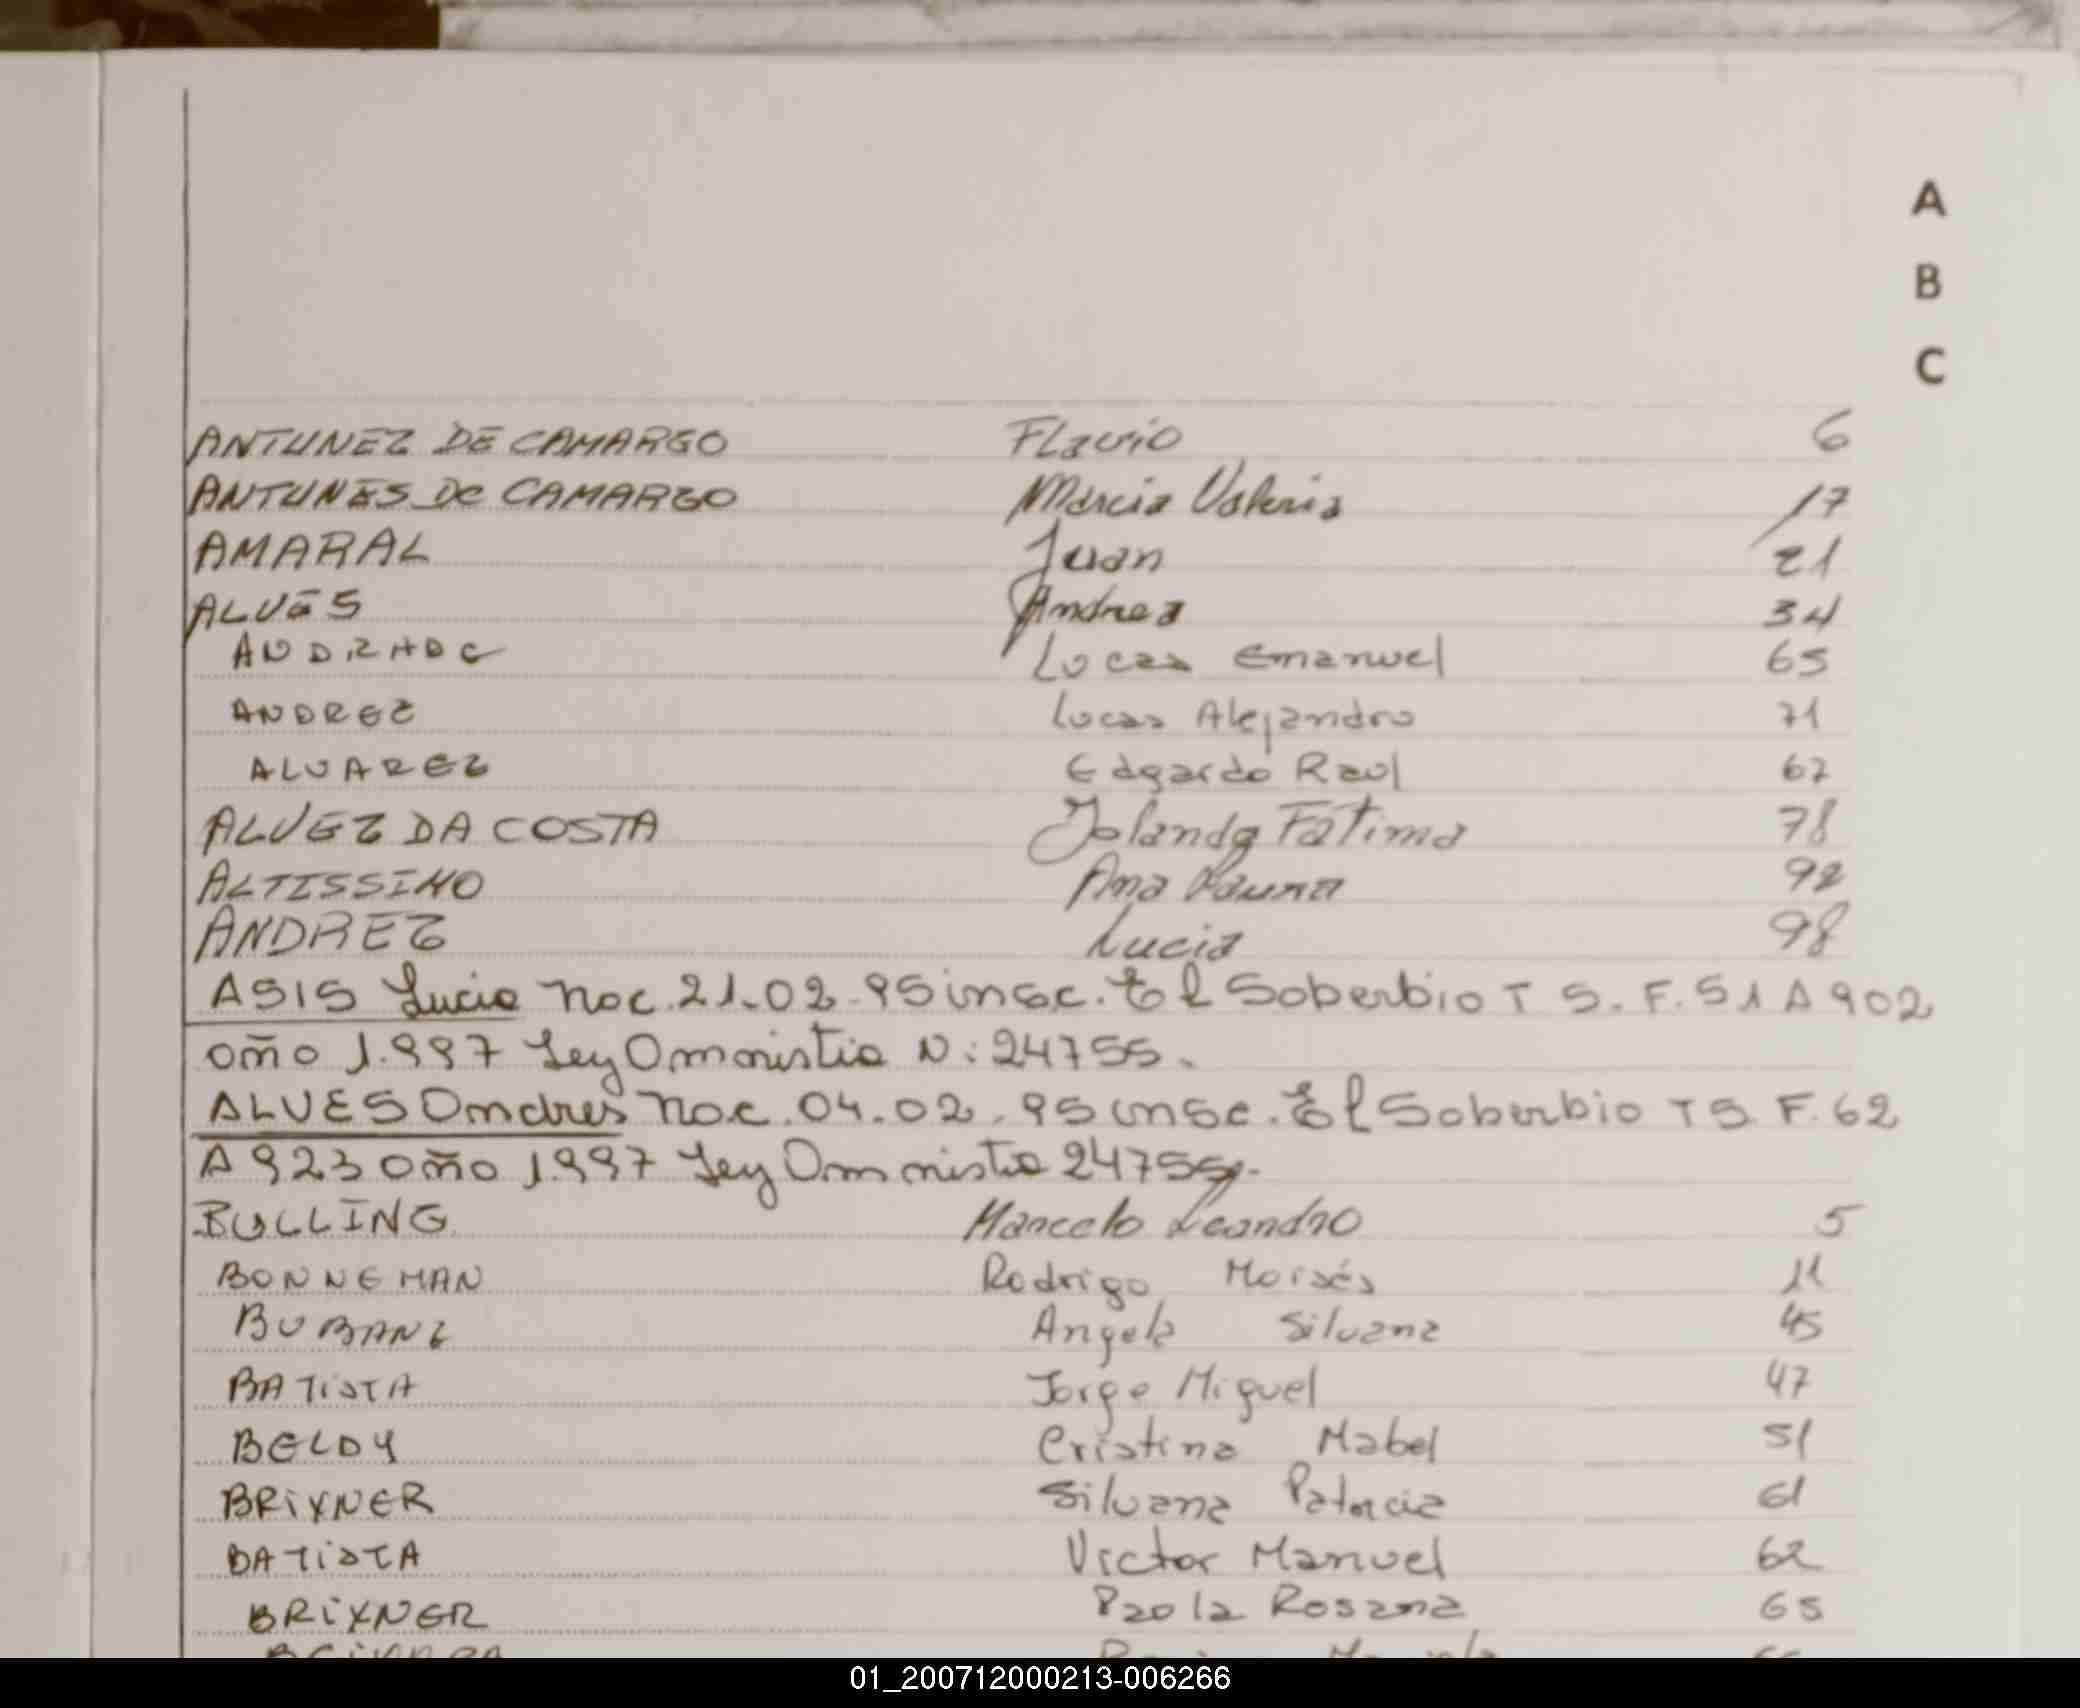 A
B
C
ANTUNEZ DE CAMARGO Flavio 6
ANTUNES DE CAMARGO Marcia Valeria 17
AMARAL Juan 21
ALVES Andrea 34
Lucas Emanuel 65
ANDREZ Lucas Alejandro 71
ALVAREZ Edgardo Raul 67
ALVEZ DA COSTA Yolanda Fatima 78
ALTISSIMO Ana 92
ANDREZ Lucia 98
ASIS Lucia nac. 21-02-95 insc. El Soberbio T 5. F. 51 A 902
año 1.997 Ley Amnistia N: 24755.
ALVES Andres nac. 04.02.95 insc. El Soberbio T 5. F. 62
A 923 año 1.997 Ley Amnistia 24755.
BULLING Marcelo Leandro 5
BONNEMAN Rodrigo Moisés 11
Angela Silvana 45
BATISTA Jorge Miguel 47
BELDY Cristina Mabel 51
BRIXNER Silvana Patricia 61
BATISTA Victor Manuel 62
BRIXNER Paola Rosana 65
01_200712000213-006266